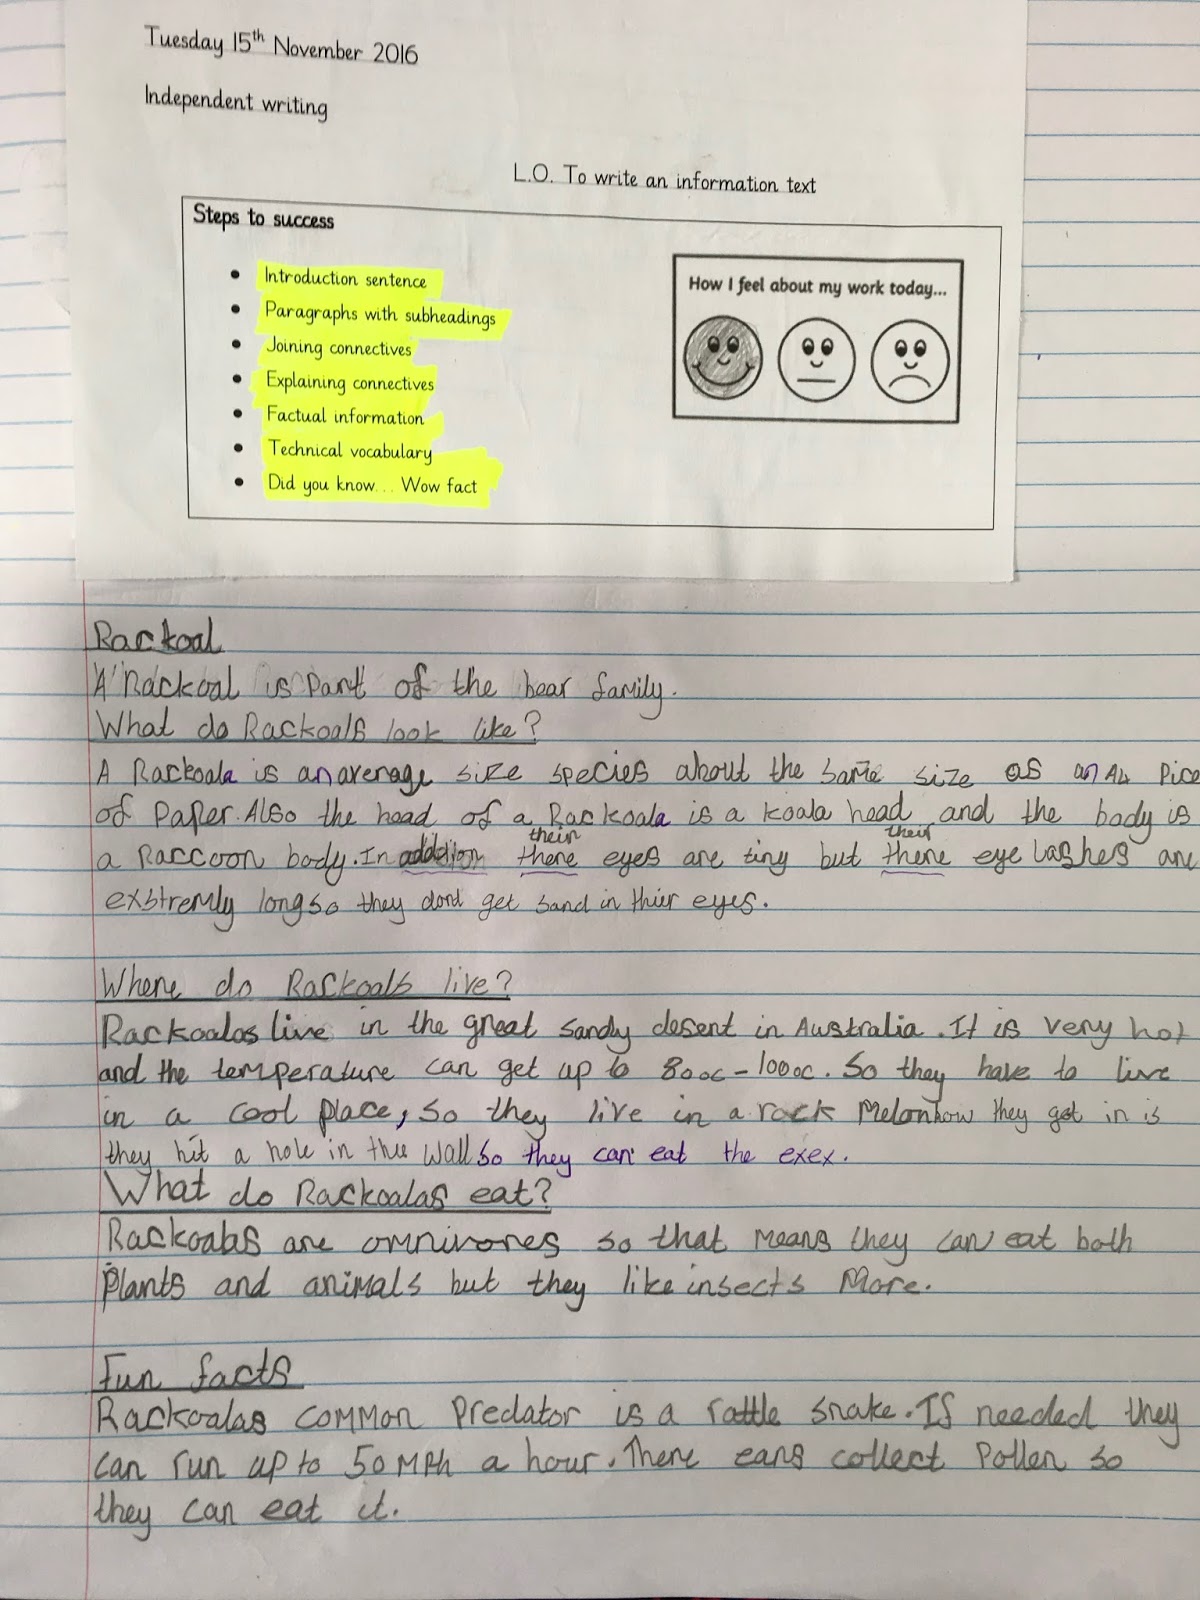 Tuesday 15th November 2016
Independent writing
L.O. To write an information text
Steps to success
• Introduction sentence
• Paragraphs with subheadings
• Joining connectives
• Explaining connectives
• Factual information
• Technical vocabulary
• Did you know.... Wow fact
How I feel about my work today...
Rackoal
A Rackoal is part of the bear family.
What do Rackoals look like?
A Rackoala is an average size species about the same size as an A4 pice
of paper. Also the head of a Rackoala is a koala head and the body is
their their
a raccoon body. In addition there eyes are tiny but there eye lashes are
exstremly long so they dont get sand in thier eyes.
Where do Rackoals live?
Rackoalas live in the great sandy desert in Australia. It is very hot
and the temperature can get up to 80oc-100oc. So they have to live
in a cool place, so they live in a rock melon how they get in is
they hit a hole in the wall so they can eat the exex.
What do Rackoalas eat?
Rackoalas are omnivores so that means they can eat both
plants and animals but they like insects more.
Fun facts
Rackoalas common predator is a rattle snake. If needed they
can run up to 50 MPh a hour. There ears collect pollen so
they can eat it.